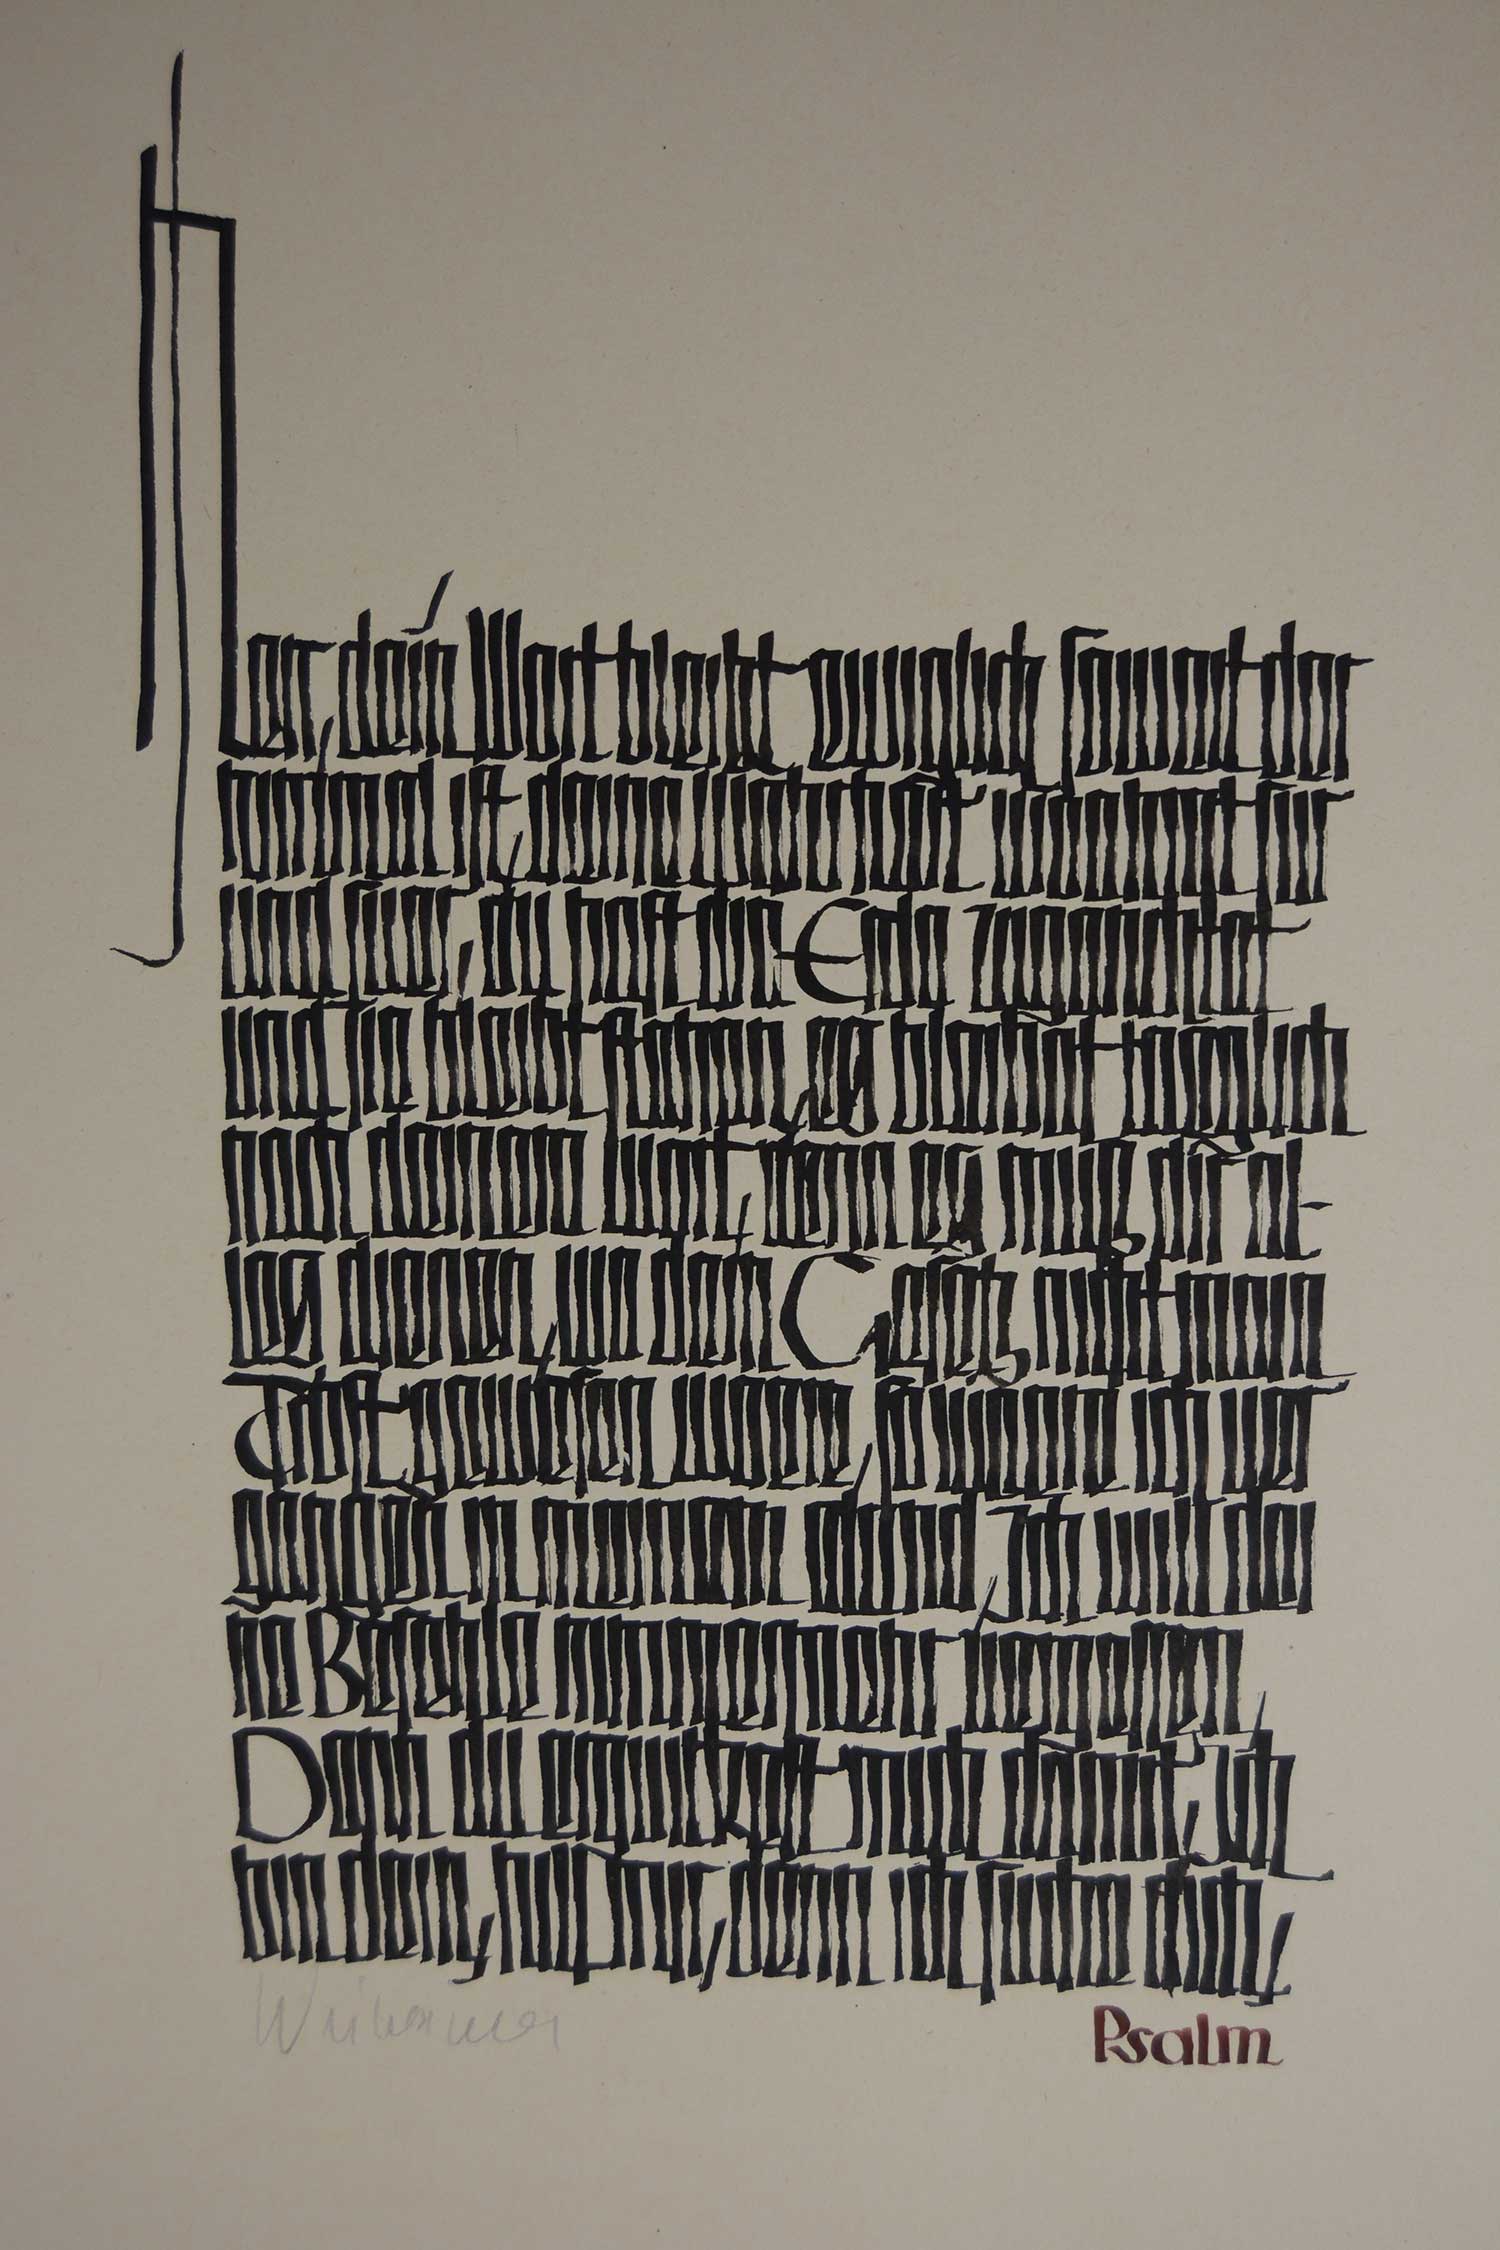 Herr, dein Wort bleibt ewiglich soweit der
himmel ist, deine Wahrheit waehret für
und fuer, du hast die Erde zugerichtet
und sie bleibt stehen, es bleibet taeglich
nach deinem wort, denn es muß dir al-
les dienen, wo dein Gesetz nicht mein
Trost gewesen waere, so waere ich ver
gangen in meinem elend, Ich will dei
ne Befehle nimmermehr vergessen,
Denn du erquickest mich damit, Ich
bin dein, hilf mir, denn ich suche dich,
Psalm